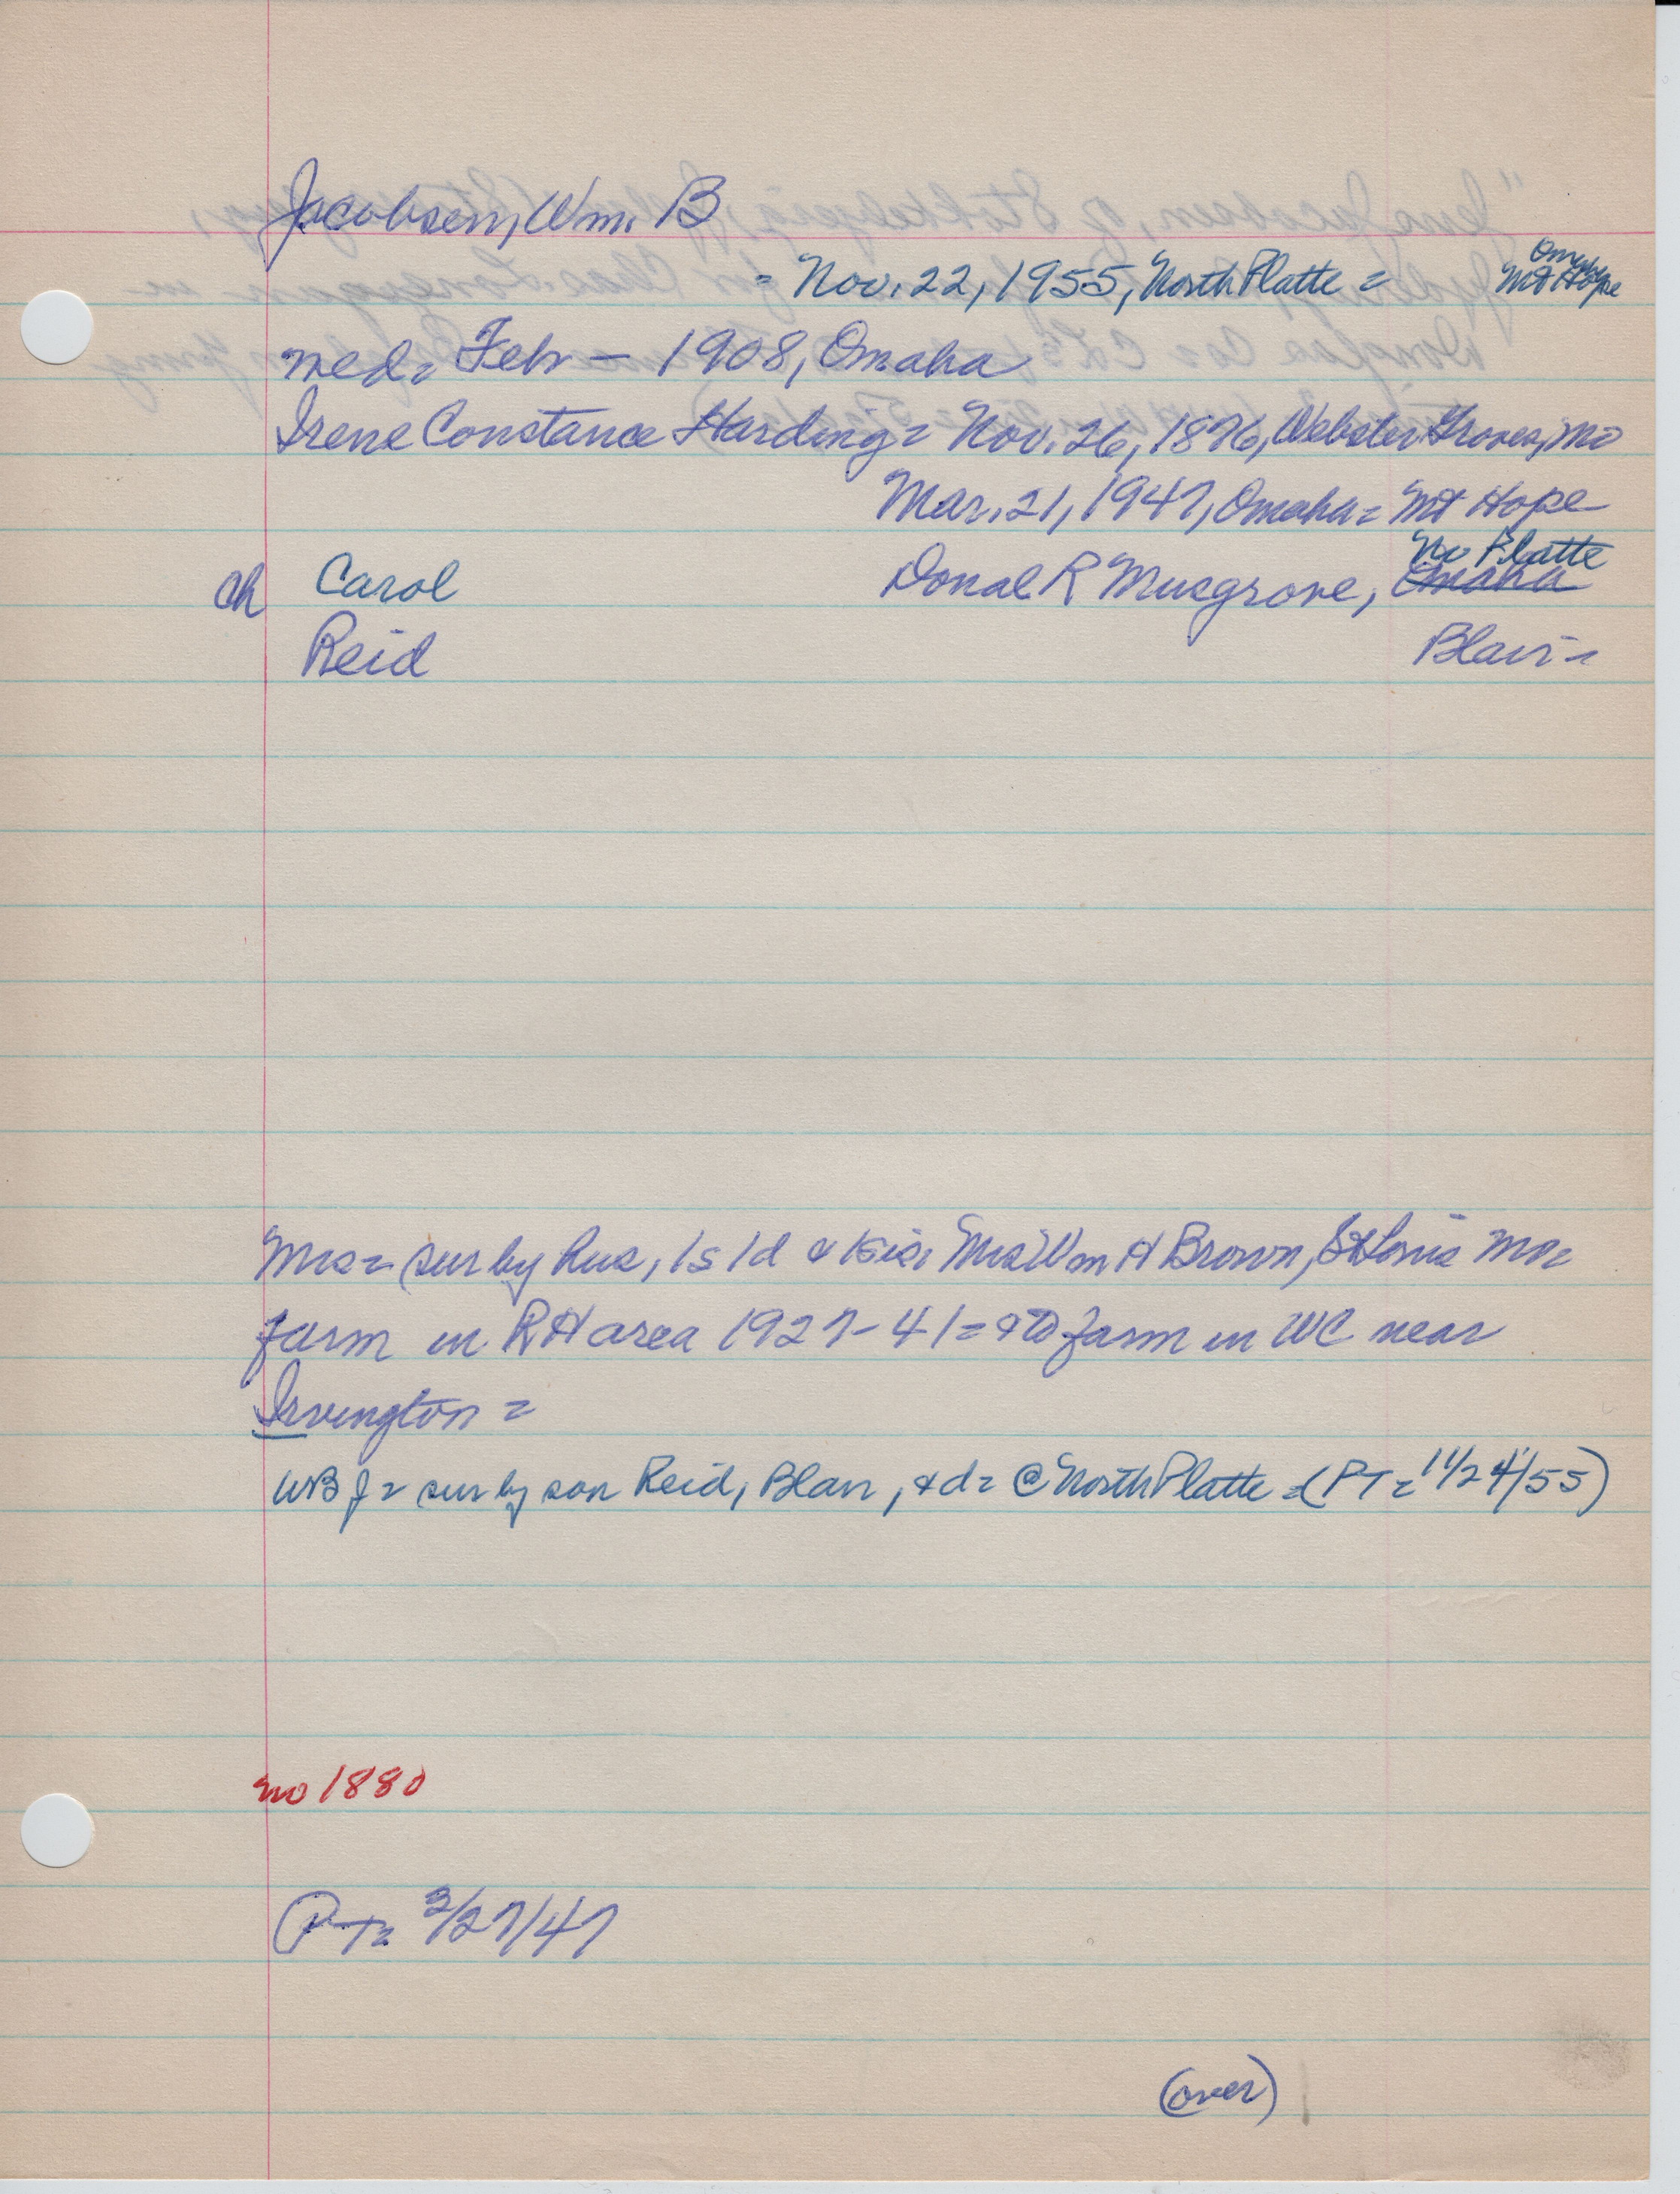 Jacobsen, Wm. B
= Nov. 22, 1955, North Platte = Omaha Mt Hope
med= Feb – 1908, Omaha
Irene Constance Harding = Nov. 26, 1876, Webster Groves, Mo
Mar. 21, 1947, Omaha = Mt Hope
No Platte
ch Carol Donal R Musgrove, Omaha
Reid Blair =
Mrs = sur by hus, 1s 1d & 1sis. Mrs Wm H Brown, St Louis Mo=
farm in RH area 1927-41 = & to farm in WC near
Irvington =
WBJ = sur by son Reid, Blair, & d= @ North Platte = (PT = 11/24/55)
no 1880
PT= 3/27/47
(over)